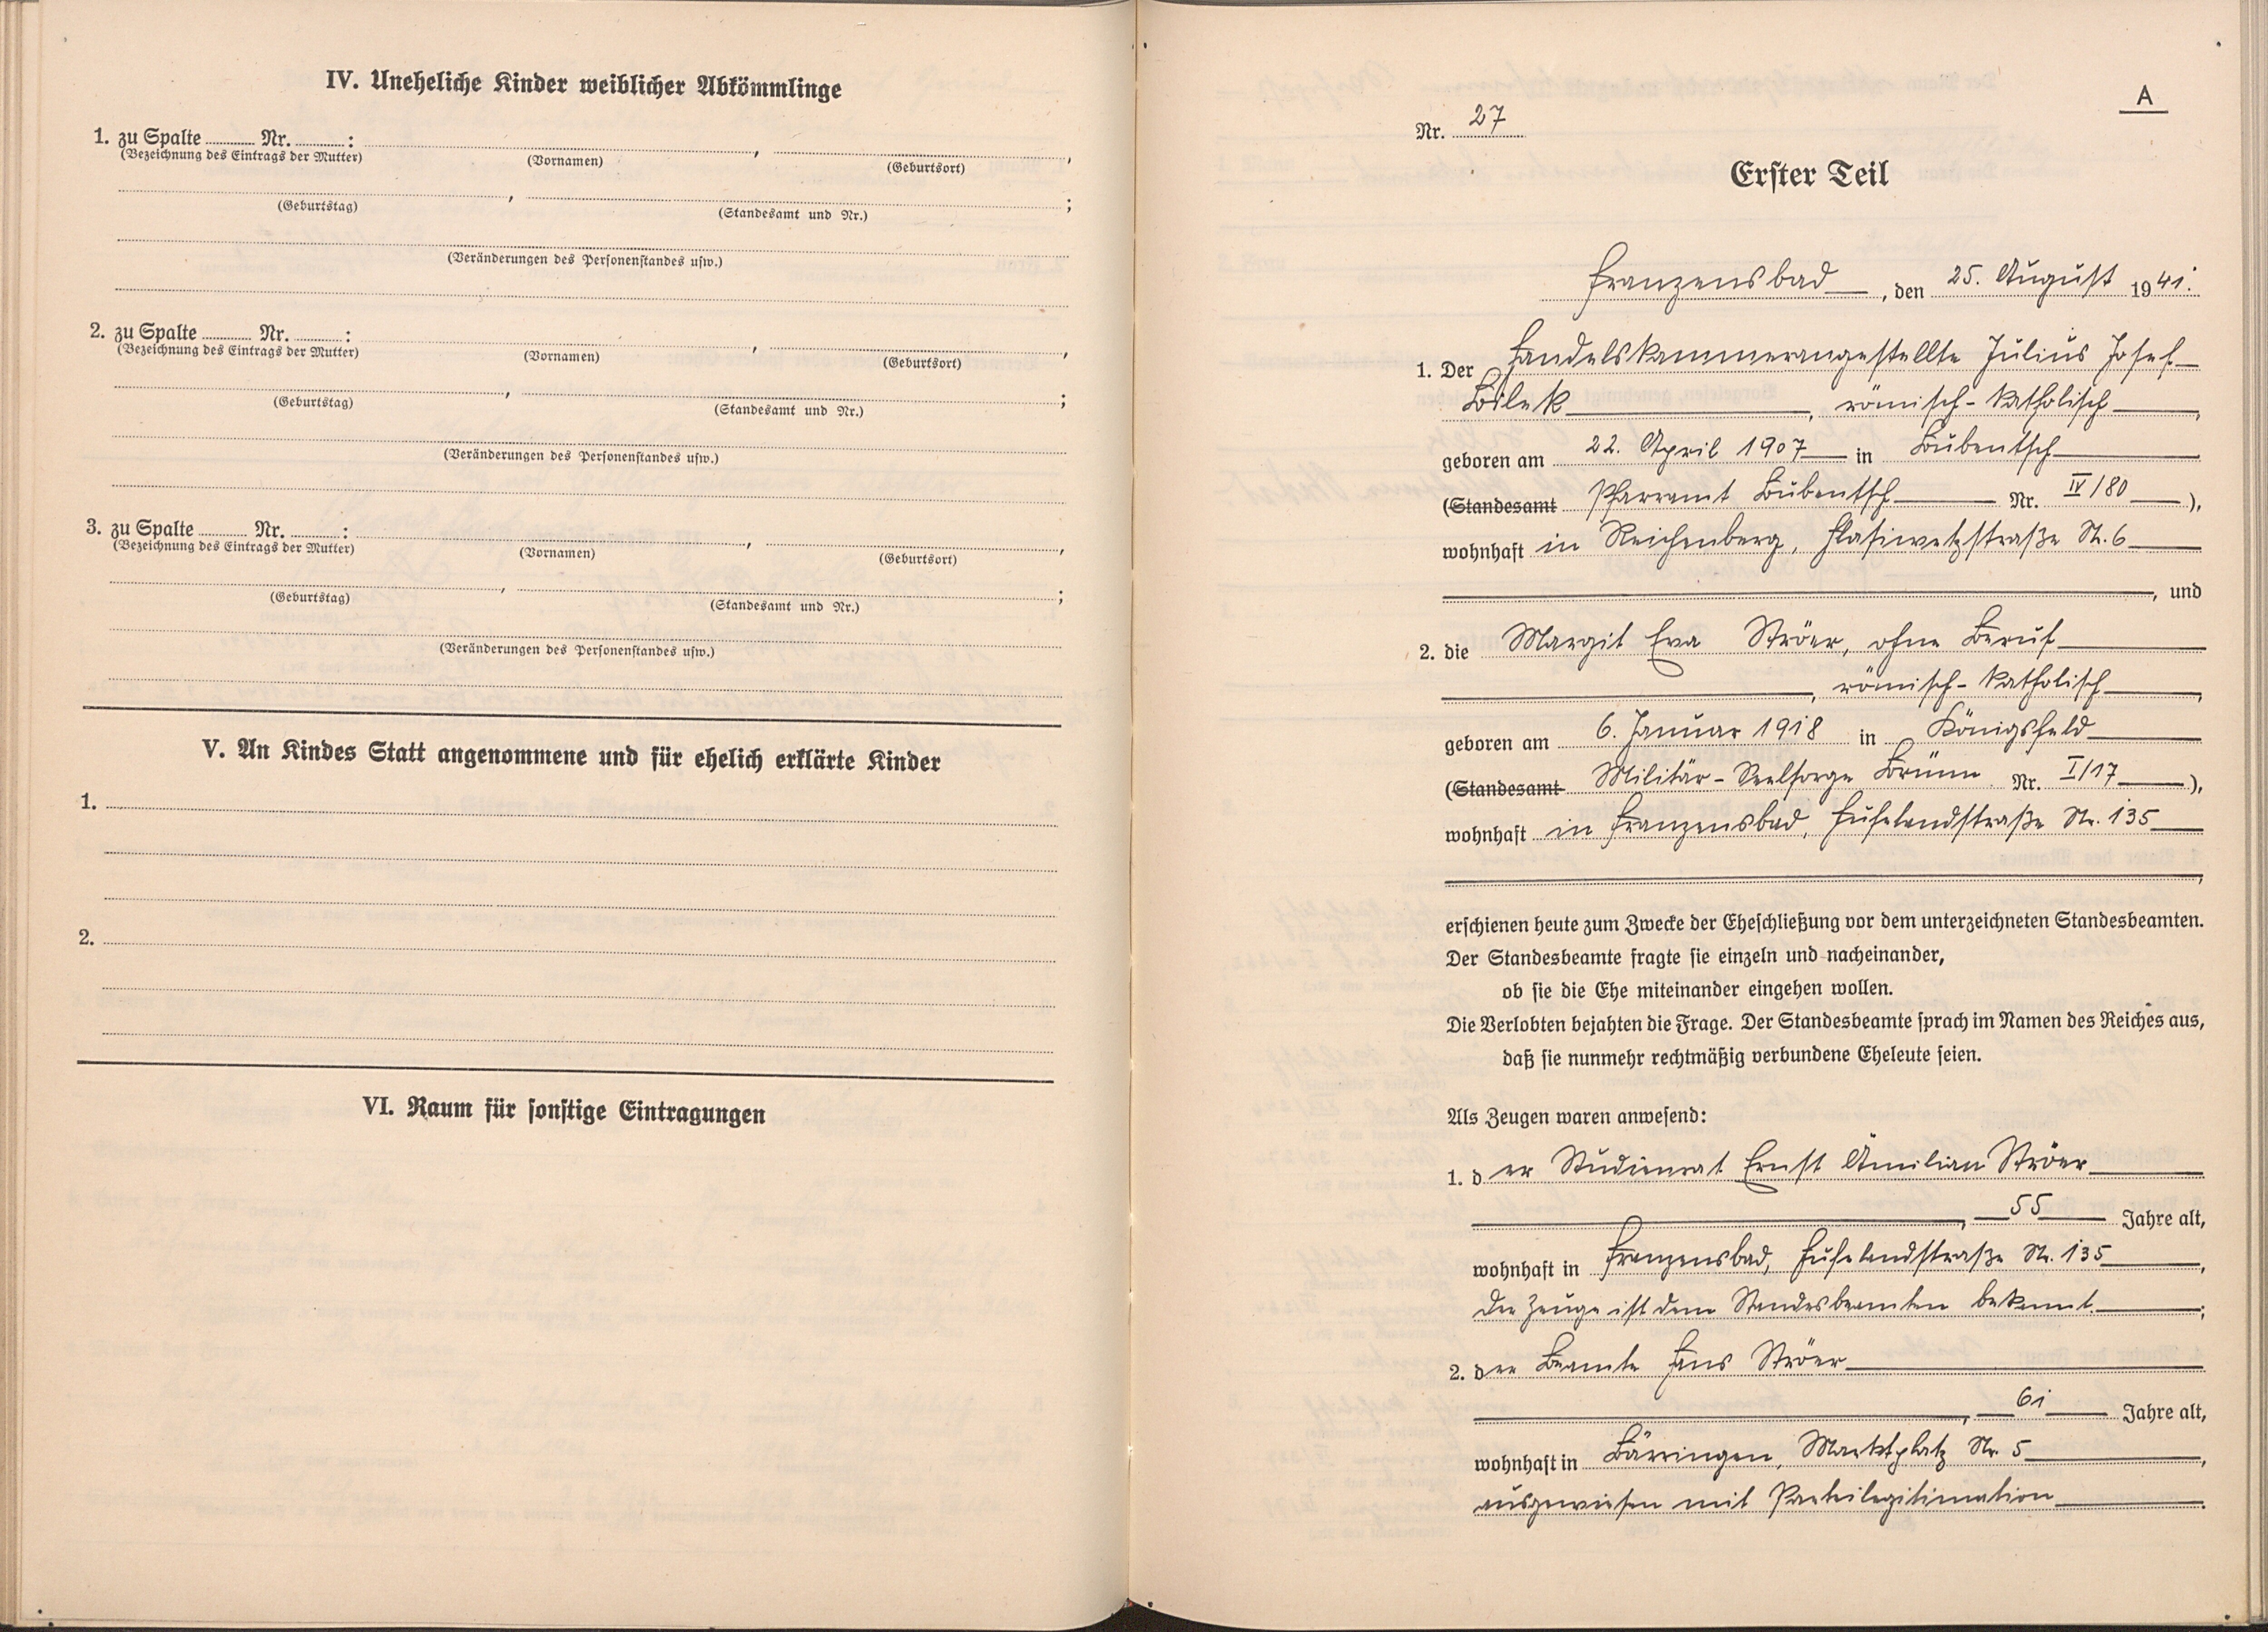 IV. Uneheliche Kinder weiblicher Abkömmlinge
1. zu Spalte ........ Nr. ........:
(Bezeichnung des Eintrags der Mutter) (Vornamen) , (Geburtsort) ,
(Geburtstag) , (Standesamt und Nr.) ;
(Veränderungen des Personenstandes usw.)
2. zu Spalte ........ Nr. ........:
(Bezeichnung des Eintrags der Mutter) (Vornamen) , (Geburtsort) ,
(Geburtstag) , (Standesamt und Nr.) ;
(Veränderungen des Personenstandes usw.)
3. zu Spalte ........ Nr. ........:
(Bezeichnung des Eintrags der Mutter) (Vornamen) , (Geburtsort) ,
(Geburtstag) , (Standesamt und Nr.) ;
(Veränderungen des Personenstandes usw.)
V. An Kindes Statt angenommene und für ehelich erklärte Kinder
1.
2.
VI. Raum für sonstige Eintragungen
A
Nr. 27
Erster Teil
Franzensbad, den 25. August 1941.
1. Der Handelskammerangestellte Julius Josef
Bilek, römisch-katholisch,
geboren am 22. April 1907 in Bubentsch
(Standesamt Pfarramt Bubentsch Nr. IV/80),
wohnhaft in Reichenberg, Hlasiwetzstraße Nr. 6
, und
2. die Margit Eva Ströer, ohne Beruf
, römisch-katholisch,
geboren am 6. Januar 1918 in Königsfeld
(Standesamt Militär-Seelsorge Brünn Nr. I/17),
wohnhaft in Franzensbad, Hufelandstraße Nr. 135
,
erschienen heute zum Zwecke der Eheschließung vor dem unterzeichneten Standesbeamten.
Der Standesbeamte fragte sie einzeln und nacheinander,
ob sie die Ehe miteinander eingehen wollen.
Die Verlobten bejahten die Frage. Der Standesbeamte sprach im Namen des Reiches aus,
daß sie nunmehr rechtmäßig verbundene Eheleute seien.
Als Zeugen waren anwesend:
1. der Studienrat Ernst Ämilian Ströer
, 55 Jahre alt,
wohnhaft in Franzensbad, Hufelandstraße Nr. 135,
Der Zeuge ist dem Standesbeamten bekannt.;
2. der Beamte Hans Ströer
, 61 Jahre alt,
wohnhaft in Bärringen, Marktplatz Nr. 5,
ausgewiesen mit Parteilegitimation.